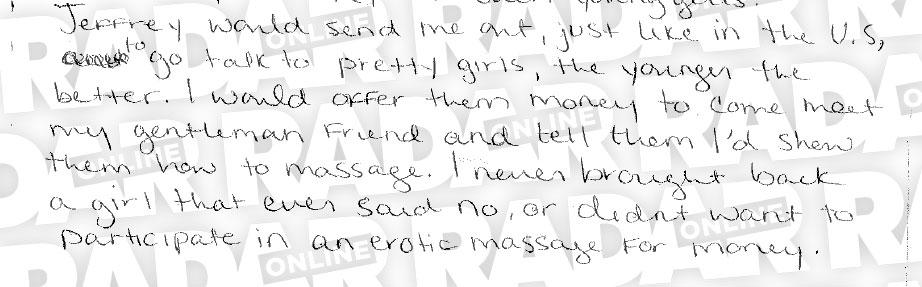 Jeffrey would send me out, just like in the U.S,
to go talk to pretty girls, the younger the
better. I would offer them money to come meet
my gentleman friend and tell them I'd show
them how to massage. I never brought back
a girl that ever said no, or didnt want to
participate in an erotic massage for money.
RADAR ONLINE